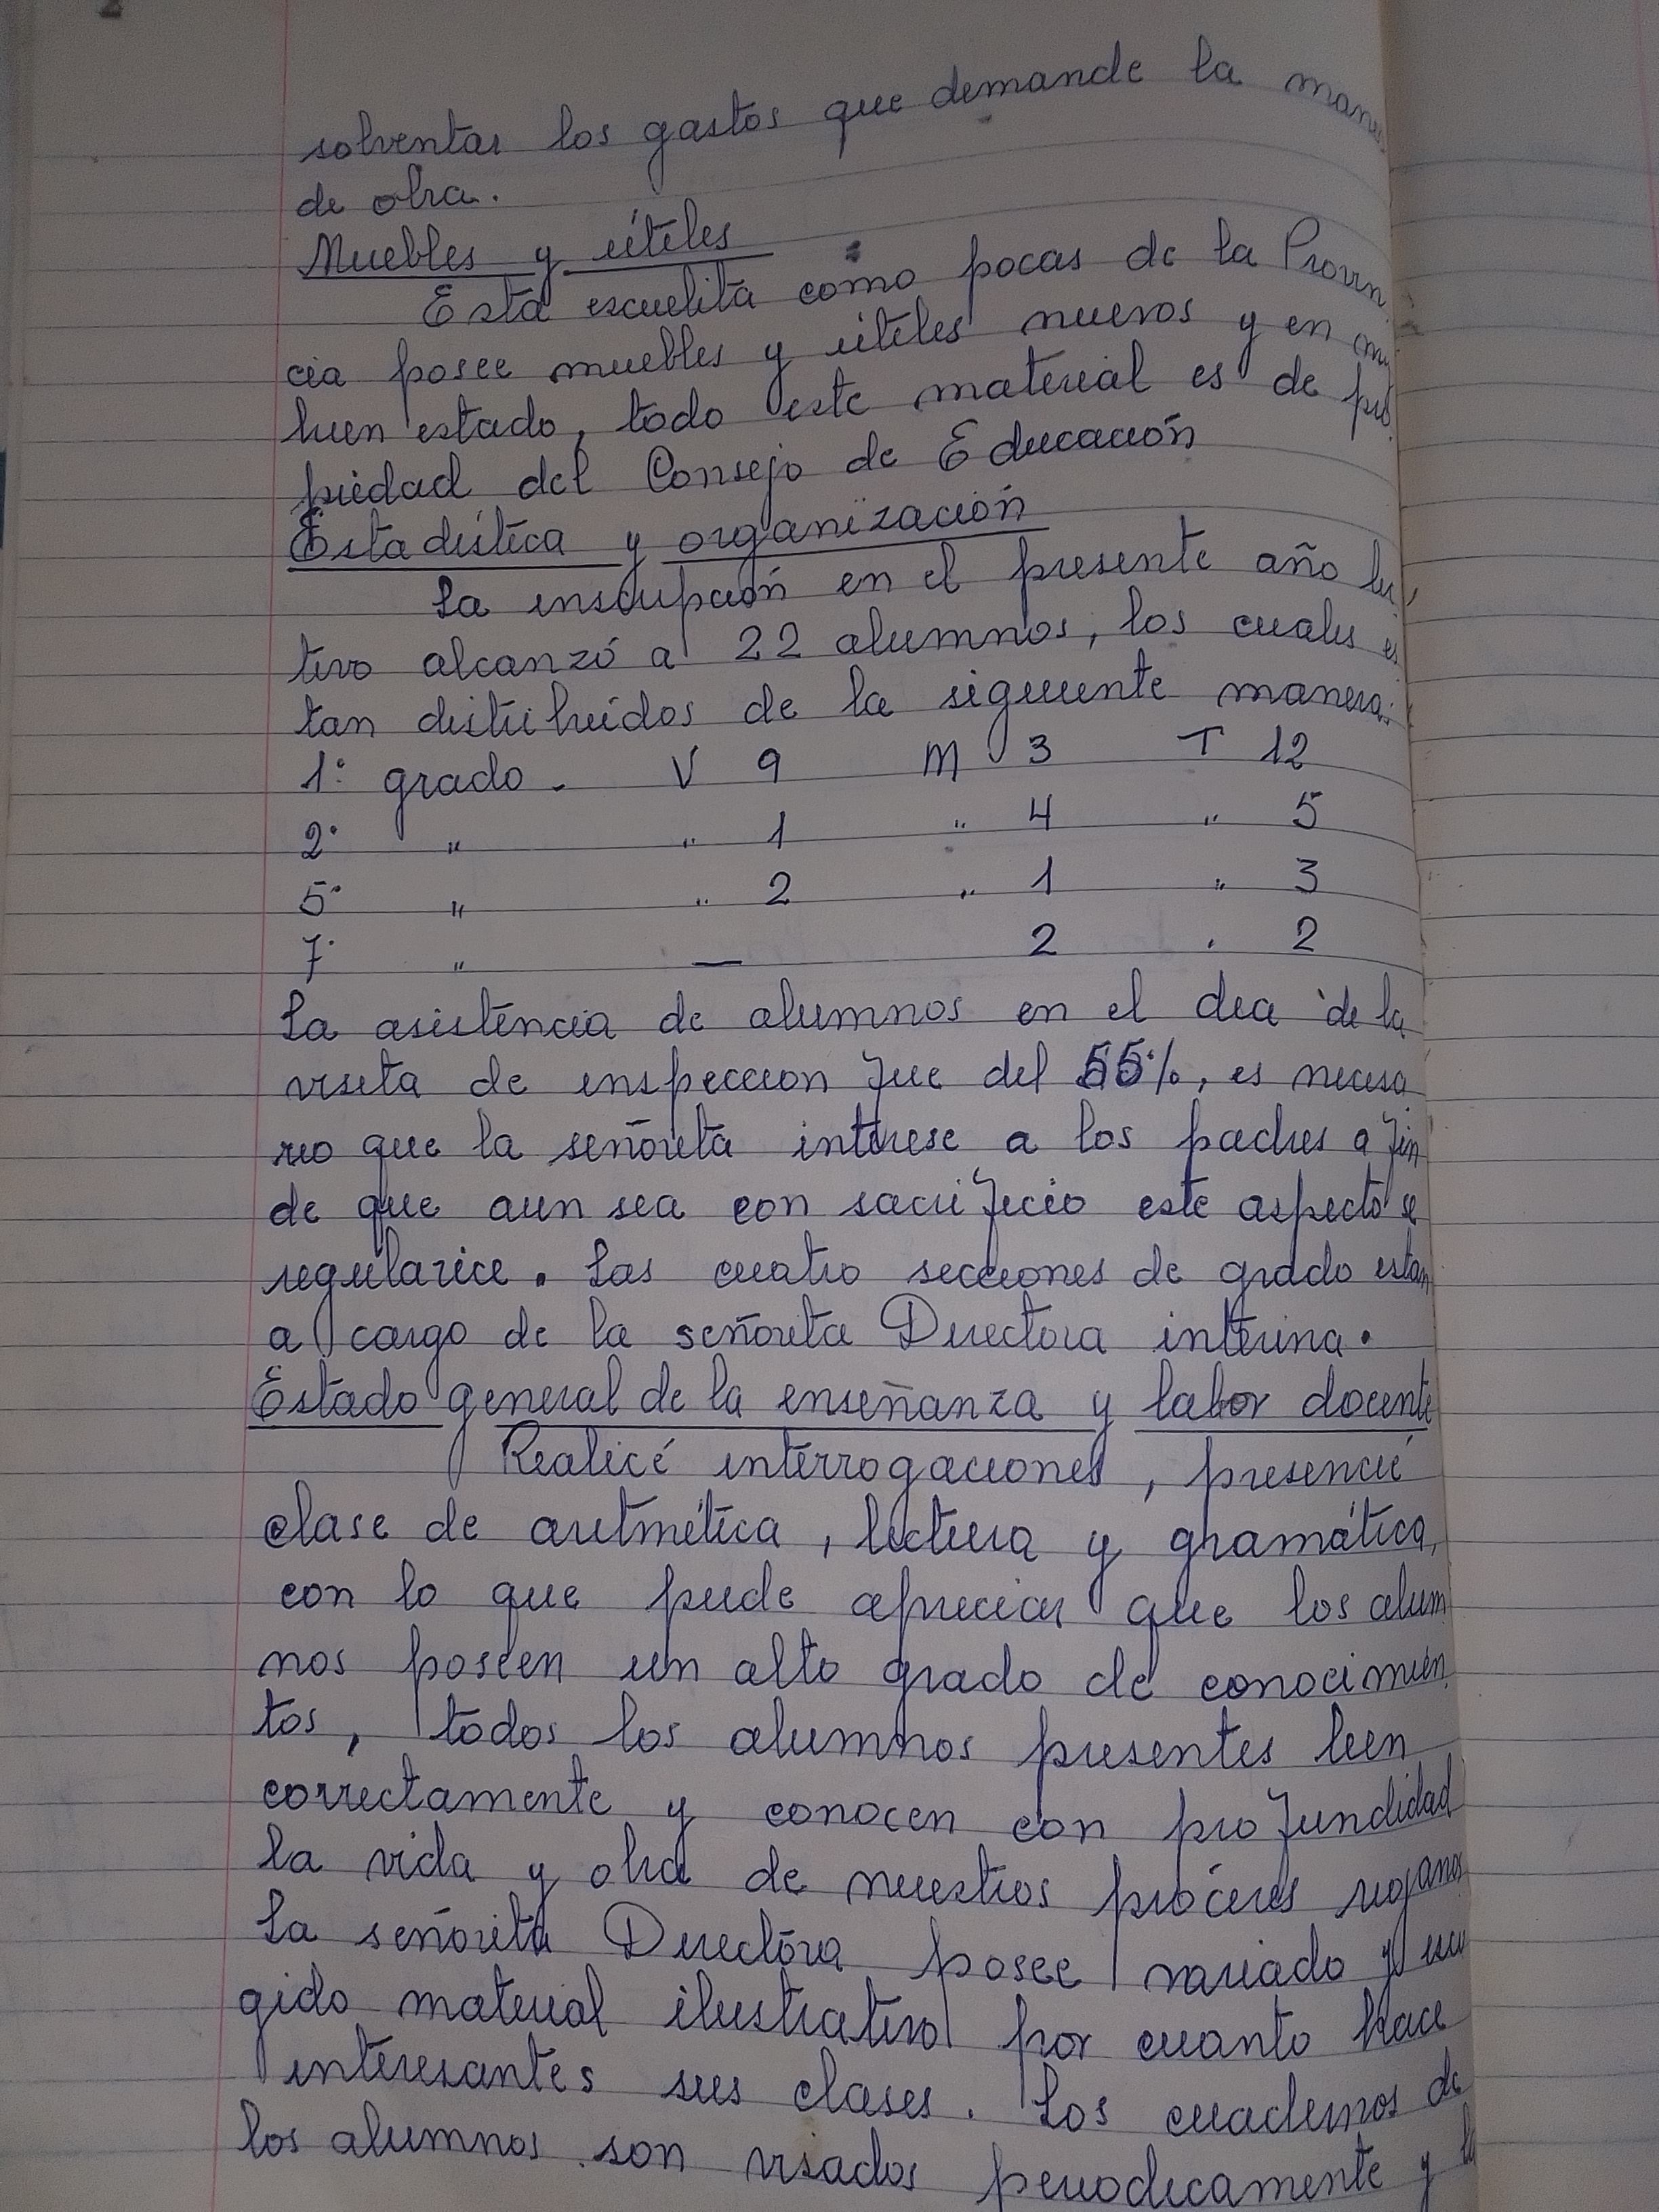 solventar los gastos que demande la mano
de obra.
Muebles y útiles
Esta escuelita como pocas de la Provin
cia posee muebles y útiles nuevos y en muy
buen estado, todo este material es de pro
piedad del Consejo de Educación
Estadística y organización
La inscripción en el presente año lec
tivo alcanzó a 22 alumnos, los cuales es
tan distribuidos de la siguiente manera:
1º grado - V 9 M 3 T 12
2º " " 1 " 4 " 5
5º " " 2 " 1 " 3
7º " — 2 " 2
La asistencia de alumnos en el dia de la
visita de inspeccion fue del 55%, es necesa
rio que la señorita interese a los padres a fin
de que aun sea con sacrificio este aspecto se
regularice. Las cuatro secciones de grado estan
a cargo de la señorita Directora interina.
Estado general de la enseñanza y labor docente
Realicé interrogaciones, presencié
clase de aritmética, lectura y gramática,
con lo que pude apreciar que los alum
nos poseen un alto grado de conocimien
tos, todos los alumnos presentes leen
correctamente y conocen con profundidad
la vida y obra de nuestros próceres riojanos
La señorita Directora posee variado y esco
gido material ilustrativo por cuanto hace
interesantes sus clases. Los cuadernos de
los alumnos son visados periodicamente y